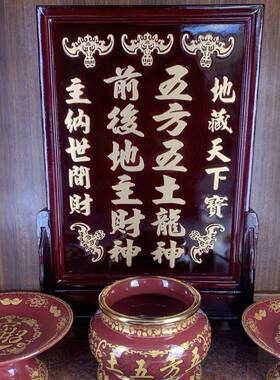 地藏天下寶
五方五土龍神
前後地主財神
主納世間財
土五方五